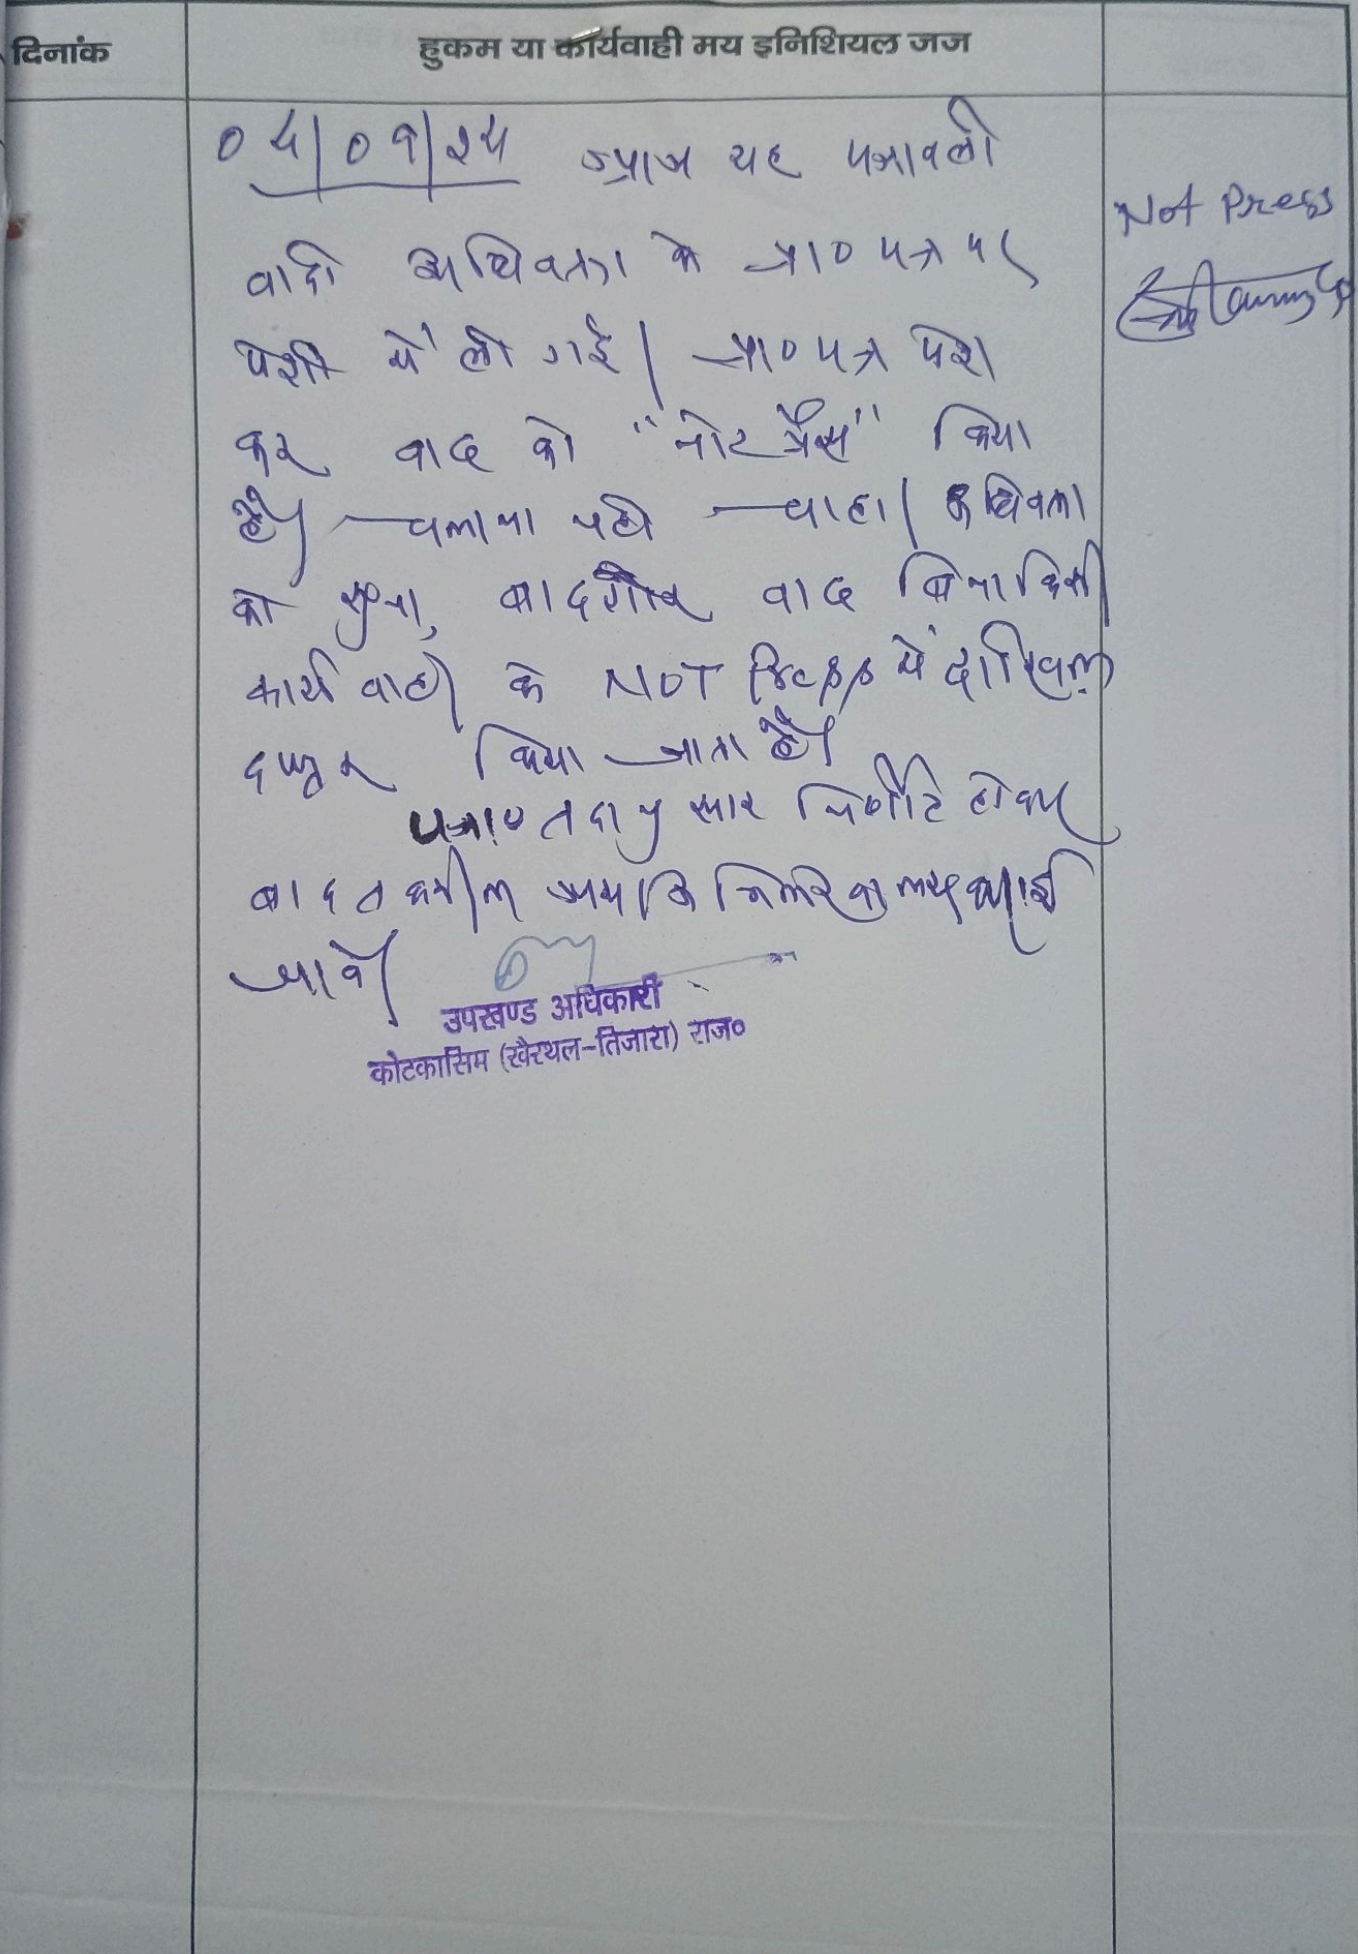 दिनांक
हुकम या कार्यवाही मय इनिशियल जज
04/09/24 आज यह पत्रावली
Not Press
वादी अधिवक्ता के प्रा० पत्र पर
पेशी में ली गई। प्रा० पत्र पेश
कर वाद को "नोट प्रैस" किया
है। चलाना नही चाहा। अधिवक्ता
को सुना, बादगौर वाद बिना किसी
कार्यवाही के NOT Press में दाखिल
दफ्तर किया जाता है।
पत्रा० तदानुसार निर्णित होकर
बाद तकमील जमा
जावे।
उपखण्ड अधिकारी
कोटकासिम (खैरथल-तिजारा) राज०